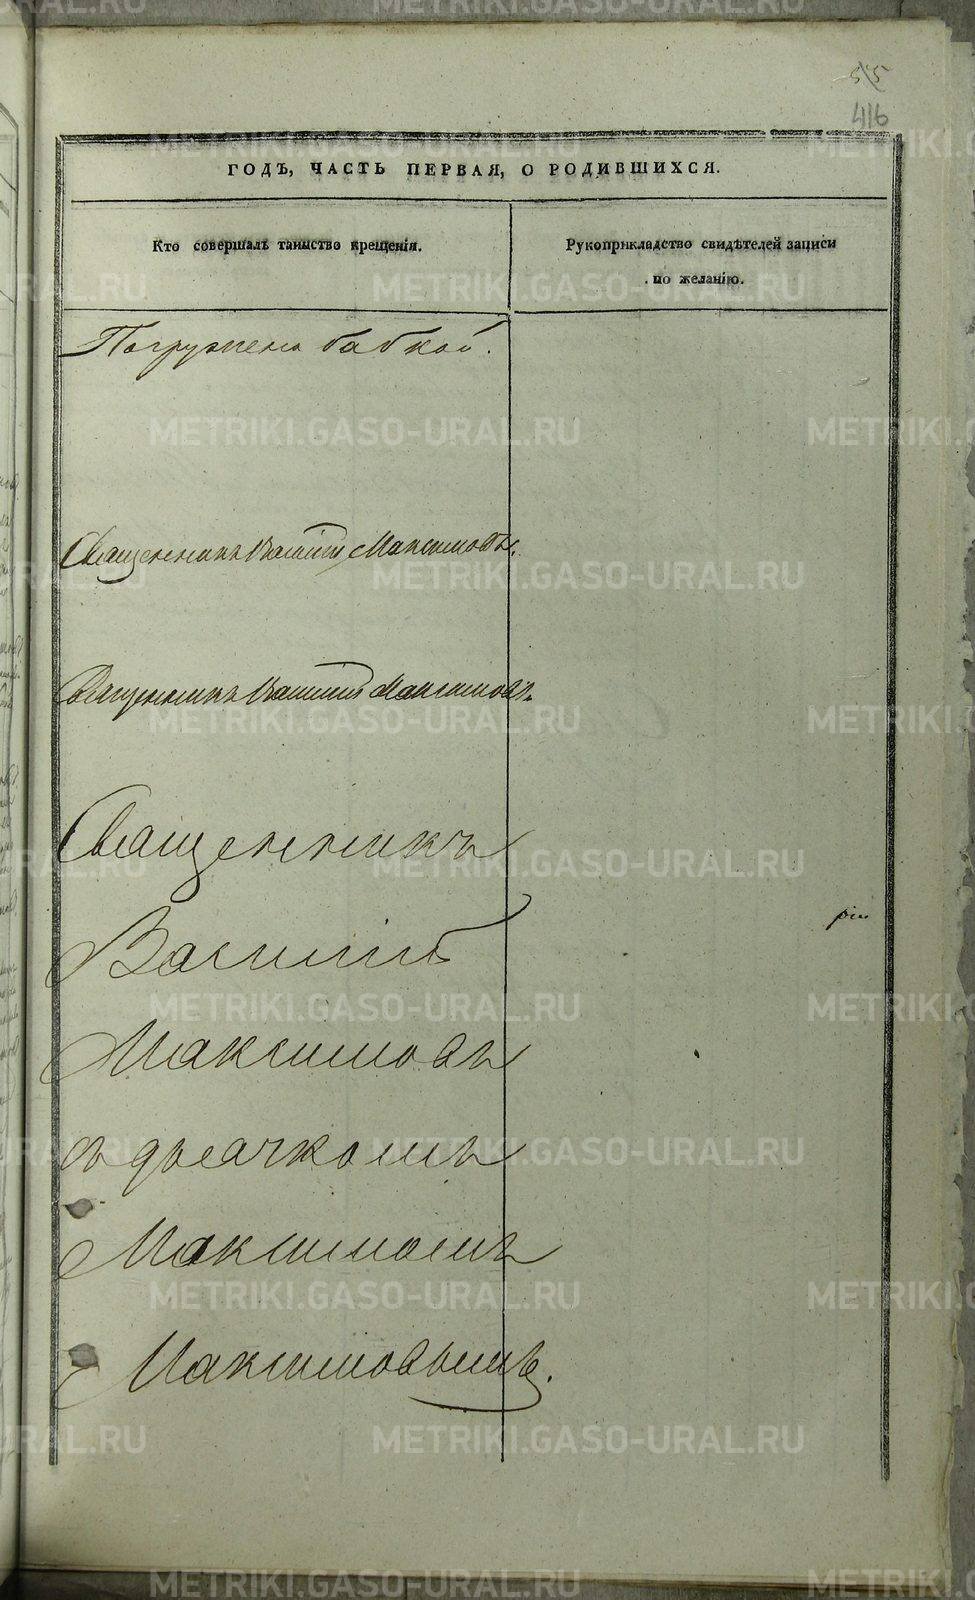 515
416
ГОДЪ, ЧАСТЬ ПЕРВАЯ, О РОДИВШИХСЯ.
Кто совершалъ таинство крещенія.
Рукоприкладство свидѣтелей записи
по желанію.
Погружено бабкой.
Священникъ Василій Максимовъ.
Священникъ Василій Максимовъ.
Священникъ
Василій
Максимовъ
съ дьячкомъ
Максимомъ
Максимовымъ.
METRIKI.GASO-URAL.RU